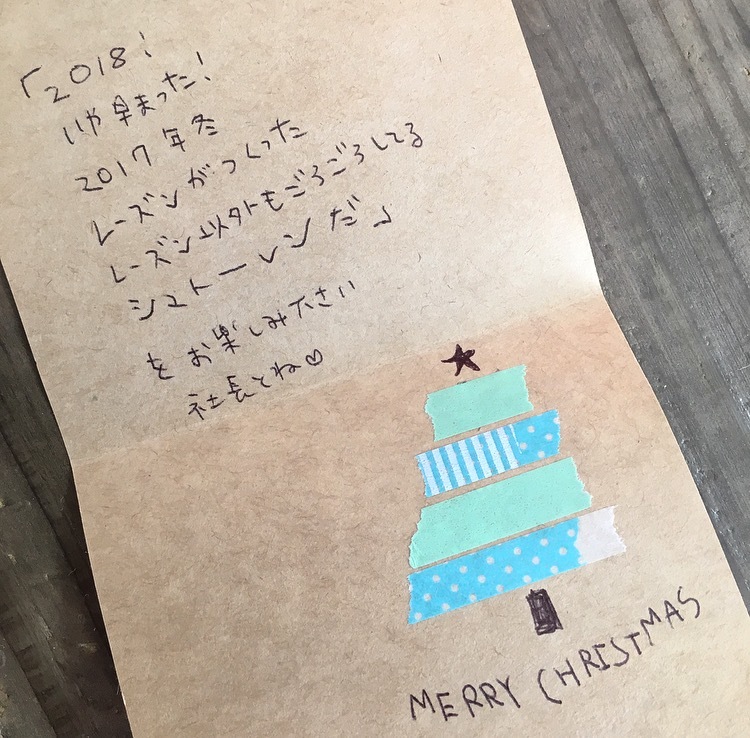 「2018!
いや早まった!
2017年冬
レーズンがつくった
レーズン以外もごろごろしてる
シュトーレンだ」
をお楽しみ下さい
社長とね♡
MERRY CHRISTMAS